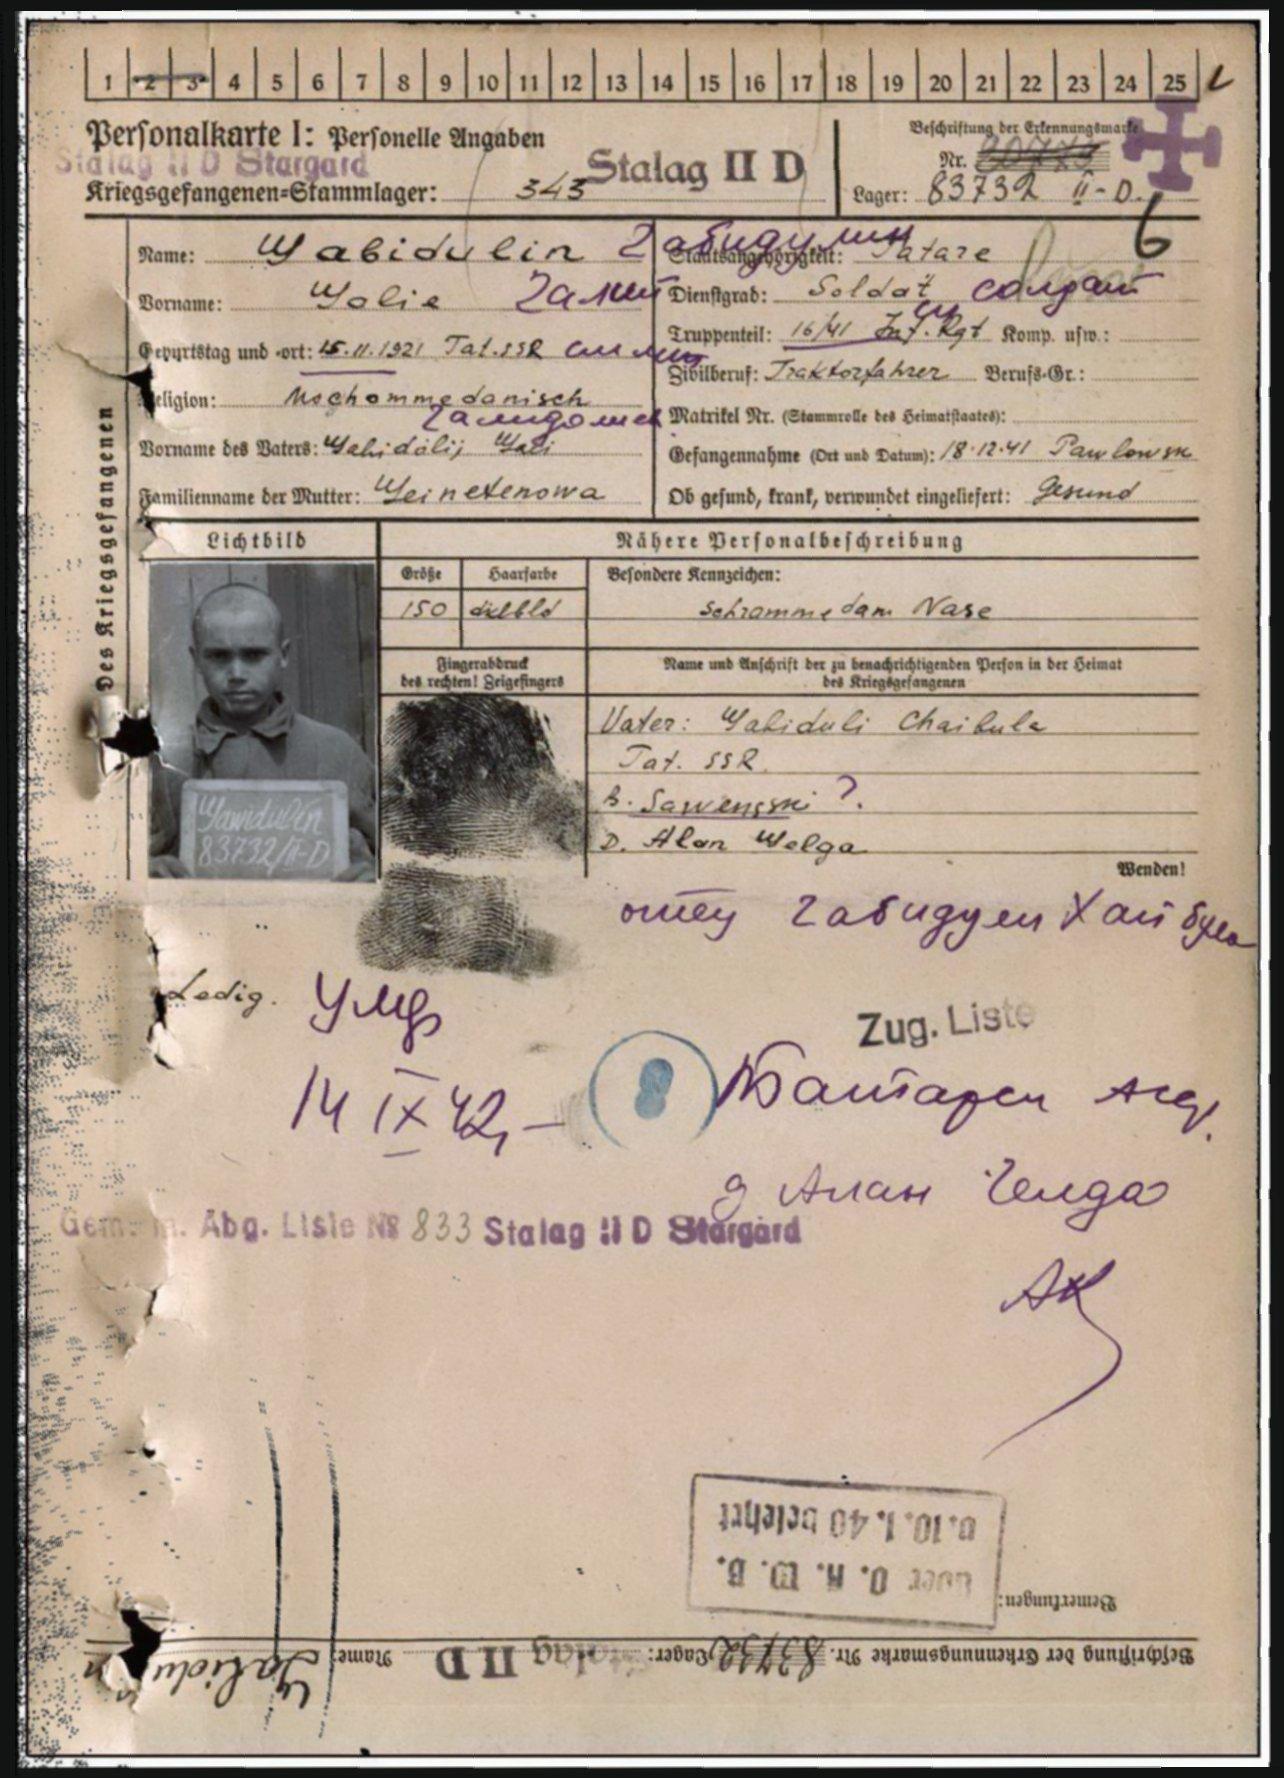 1 2 3 4 5 6 7 8 9 10 11 12 13 14 15 16 17 18 19 20 21 22 23 24 25
Personalkarte I: Personelle Angaben
Stalag II D Stargard
Kriegsgefangenen-Stammlager: 343 Stalag II D
Beschriftung der Erkennungsmarke
Nr.
Lager: 83732 II-D.
6
Des Kriegsgefangenen
Name: Yabidulin Габидулин
Vorname: Yalie Галий
Geburtstag und -ort: 15.11.1921 Tat.SSR
Religion: Mochommedanisch
Vorname des Vaters: Yabidoli, Yali
Familienname der Mutter: Seinetenowa
Staatsangehörigkeit: Tatare
Dienstgrad: Soldat солдат
Truppenteil: 16/41 Inf. Rgt Komp. usw.:
Zivilberuf: Traktorfahrer Berufs-Gr.:
Matrikel Nr. (Stammrolle des Heimatstaates):
Gefangennahme (Ort und Datum): 18.12.41 Pawlowsk
Ob gesund, krank, verwundet eingeliefert: Gesund
Lichtbild
Nähere Personalbeschreibung
Größe Haarfarbe Besondere Kennzeichen:
150 Schramme dam Nase
Fingerabdruck
des rechten! Zeigefingers
Name und Anschrift der zu benachrichtigenden Person in der Heimat
des Kriegsgefangenen
Vater: Yabiduli Chaibula
Tat. SSR.
B. Sawengski ?.
D. Alan Yelga
Yawidulin
83732/II-D
Wenden!
отец Габидулин Хайбула
Ledig.
Умер
14 IX 42, -
Zug. Liste
д Алан
Gem. Abg. Liste № 833 Stalag II D Stargard
АК
über O. K. W. B.
v. 10. 1. 40 belehrt
Bemerkungen:
Beschriftung der Erkennungsmarke Nr. 83732 Lager: Stalag II D
Name: Yabidulin